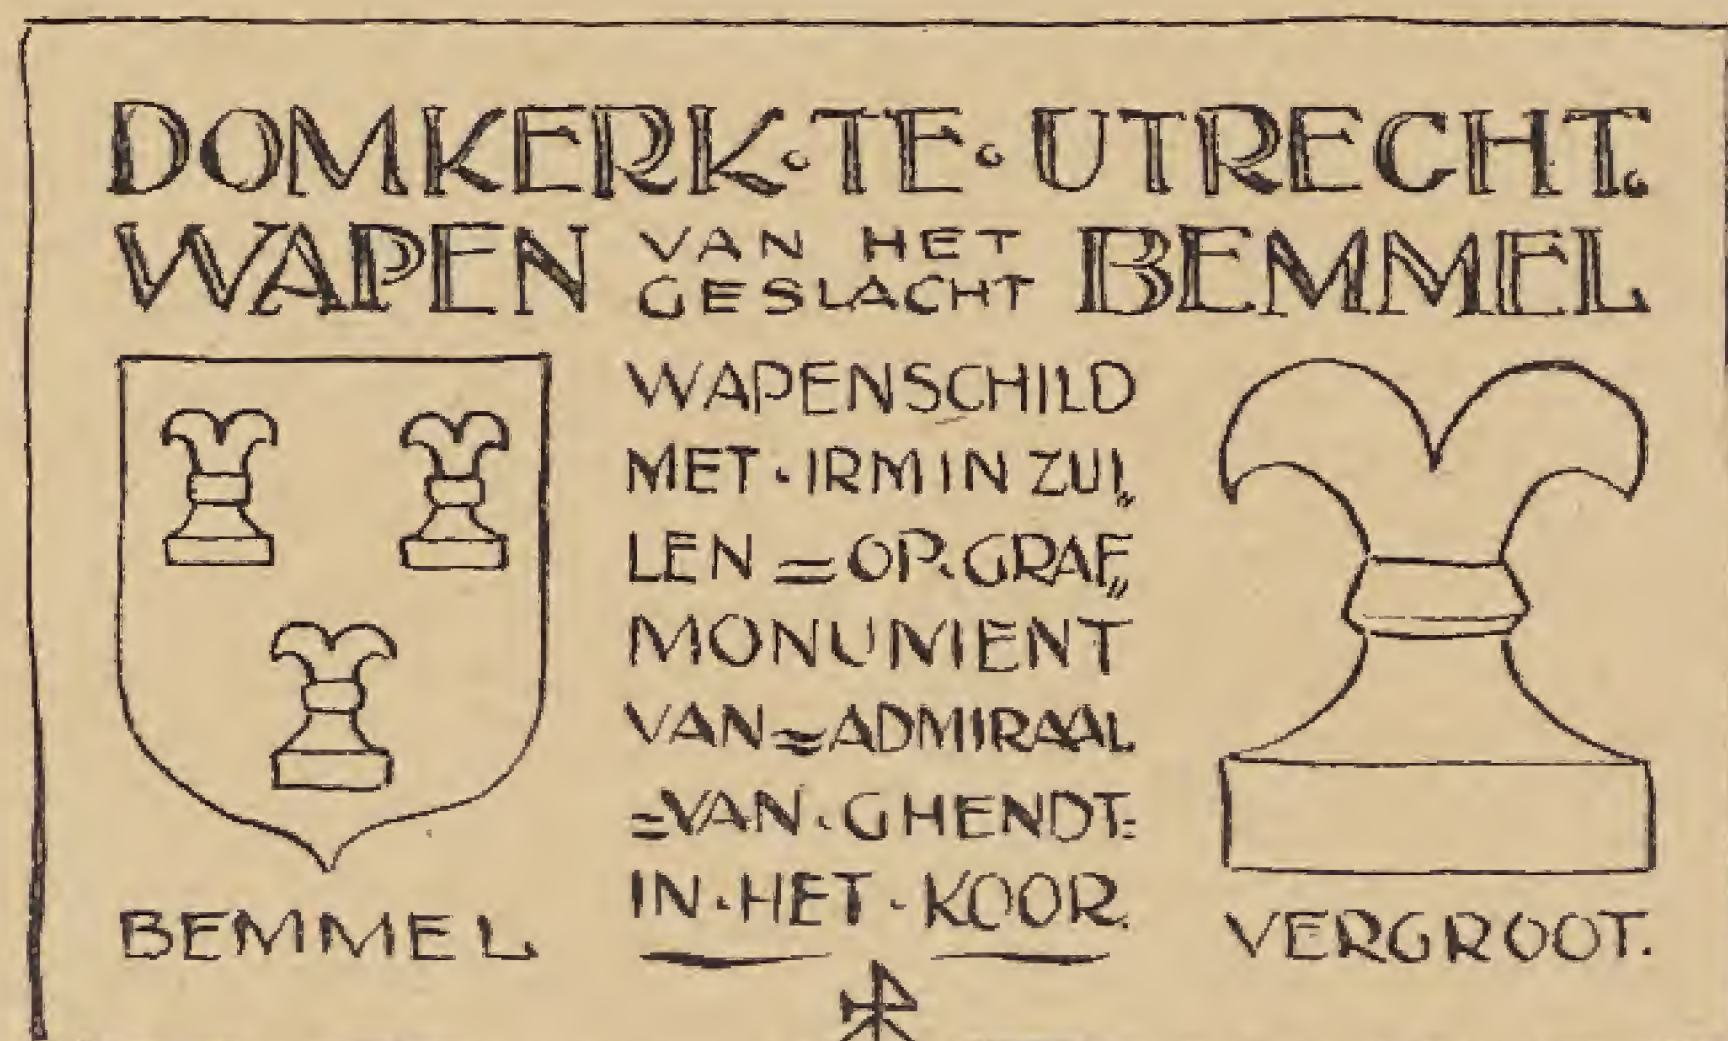 DOMKERK·TE·UTRECHT.
WAPEN VAN HET GESLACHT BEMMEL
WAPENSCHILD
MET·IRMINZUI„
LEN=OP·GRAF„
MONUMENT
VAN=ADMIRAAL
=VAN·GHENDT=
IN·HET·KOOR.
BEMMEL
VERGROOT.